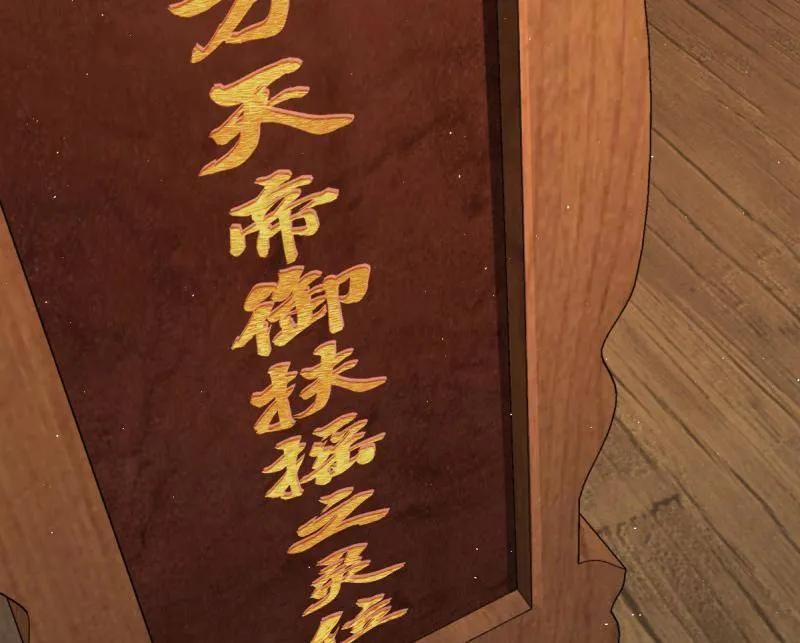 万天帝御扶摇之灵位